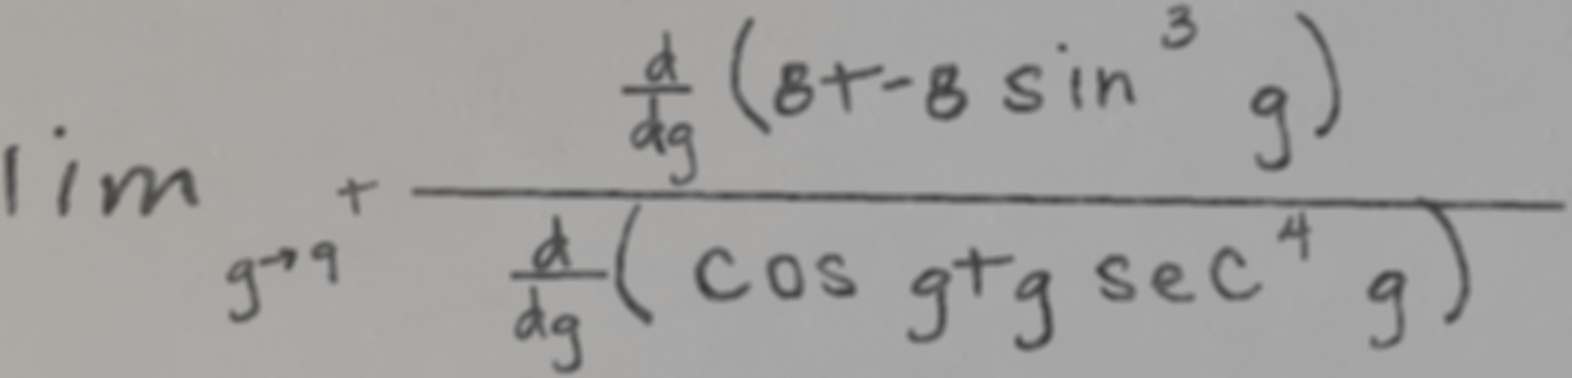 \lim_{g \to 9^+} \frac{\frac{d}{dg}(8+-8 \sin^3 g)}{\frac{d}{dg}(\cos g+g \sec^4 g)}